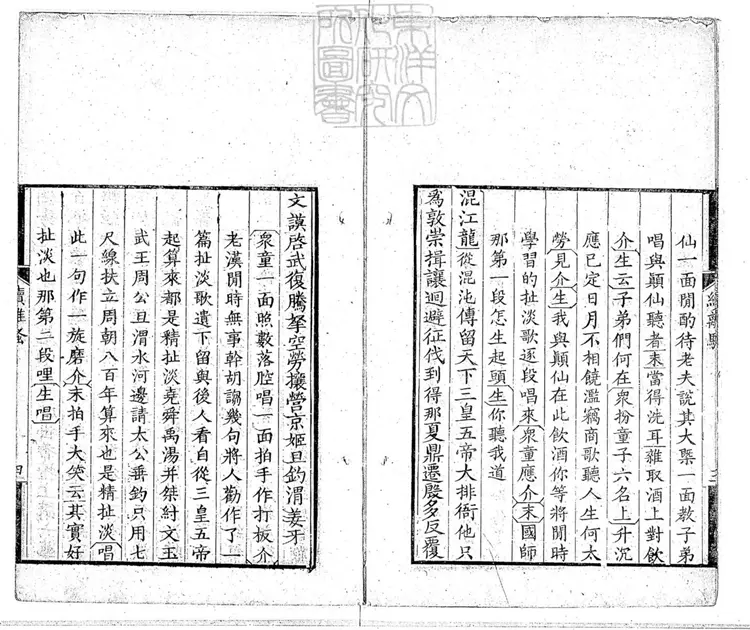 東洋文
化研究
所圖書
仙一面閒酌待老夫說其大槩一面教子弟
唱與顛仙聽者末當得洗耳雜取酒上對飲
介生云子弟們何在衆扮童子六名上升沉
應已定日月不相饒濫竊商歌聽人生何太
勞見介生我與顛仙在此飲酒你等將閒時
學習的扯淡歌逐段唱來衆童應介末國師
那第一段怎生起頭生你聽我道
混江龍從混沌傳留天下三皇五帝大排衙他只
爲敦崇揖讓迴避征伐到得那夏鼎遷殷多反覆
續離騷
三
文謨啓武復騰拏空勞攘營京姬旦釣渭姜牙
衆童一面照數落腔唱一面拍手作打板介
老漢閒時無事幹胡謅幾句將人勸作了一
篇扯淡歌遺下留與後人看自從三皇五帝
起算來都是精扯淡堯舜禹湯并桀紂文王
武王周公旦渭水河邊請太公垂釣只用七
尺線扶立周朝八百年算來也是精扯淡唱
此一句作一旋磨介末拍手大笑云其實好
扯淡也那第二段哩生唱
續離騷
四